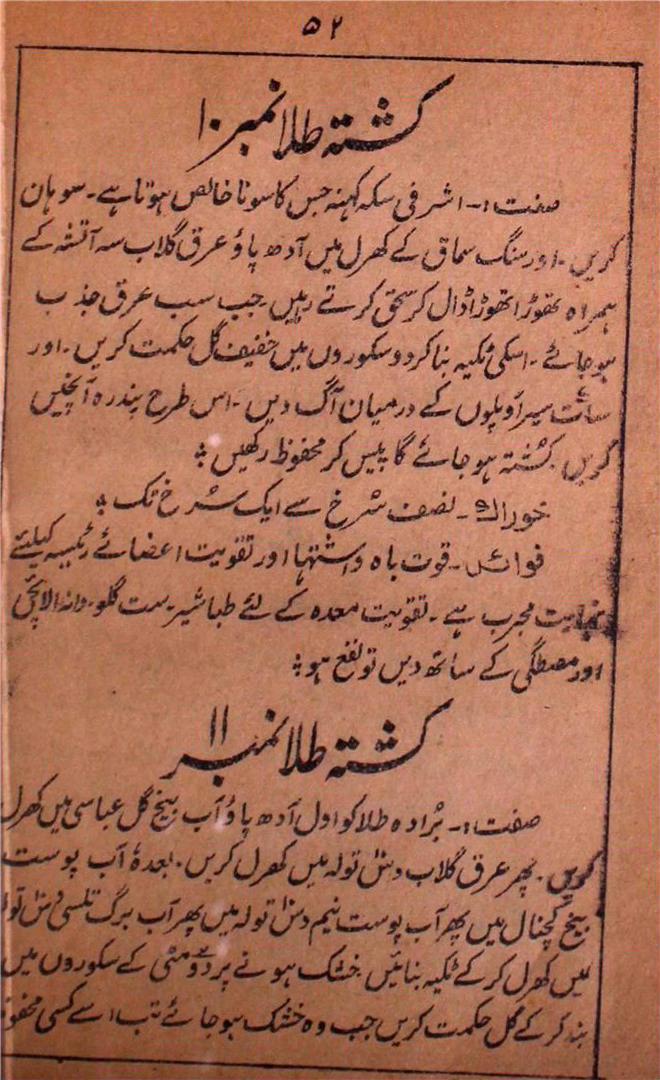 ۵۲
کشتہ طلا نمبر ۱۰
صفت:۔ اشرفی سکہ کہنہ جس کا سونا خالص ہوتا ہے۔ سوہان
کریں۔ اور سنگ سماق کے کھرل میں آدھ پاؤ عرق گلاب سہ آتشہ کے
ہمراہ تھوڑا تھوڑا ڈال کر سحق کرتے رہیں۔ جب سب عرق جذب
ہو جائے۔ اسکی ٹکیہ بنا کر دو سکوروں میں خفیف گل حکمت کریں۔ اور
سات سیر اوپلوں کے درمیان آگ دیں۔ اس طرح پندرہ آنچیں
کریں۔ کشتہ ہو جائے گا پیس کر محفوظ رکھیں ؞
خوراک۔ نصف سرخ سے ایک سرخ تک ؞
فوائد۔ قوت باہ و اشتہا اور تقویت اعضائے رئیسہ کیلئے
نہایت مجرب ہے۔ تقویت معدہ کے لئے طباشیر۔ ست گلو۔ دانہ الائچی
اور مصطگی کے ساتھ دیں تو نفع ہو ؞
کشتہ طلا نمبر ۱۱
صفت:۔ برادہ طلا کو اول آدھ پاؤ آب بیخ گل عباسی میں کھرل
کریں۔ پھر عرق گلاب دس تولہ میں کھرل کریں۔ بعدہٗ آب پوست
بیخ کچنال میں پھر آب پوست نیم دس تولہ میں پھر آب برگ تلسی دس تولہ
میں کھرل کر کے ٹکیہ بنائیں خشک ہونے پر دو مٹی کے سکوروں میں
بند کر کے گل حکمت کریں جب وہ خشک ہو جائے تب اسے کسی محفوظ